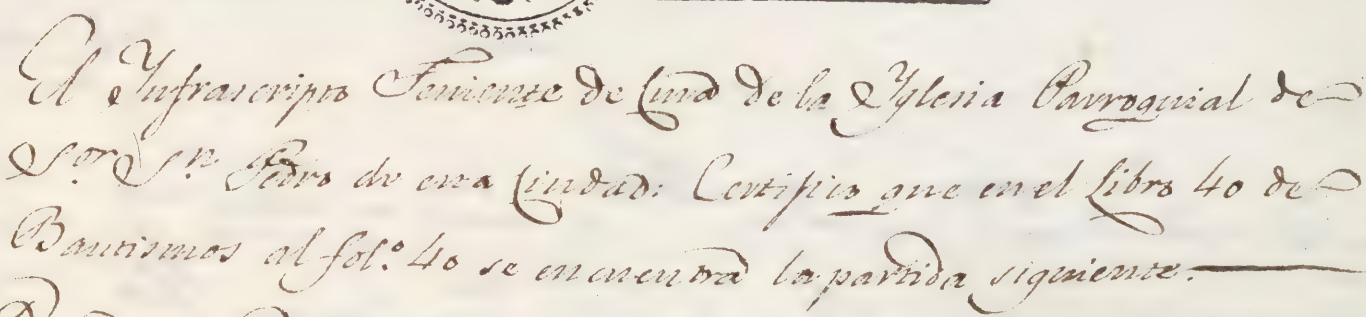 El Ynfrascripto Teniente de Cura de la Yglesia Parroquial de
Sor. Sn. Pedro de esta Ciudad: Certifico que en el Libro 40 de
Bautismos al fol.º 40 se encuentra la partida siguiente.